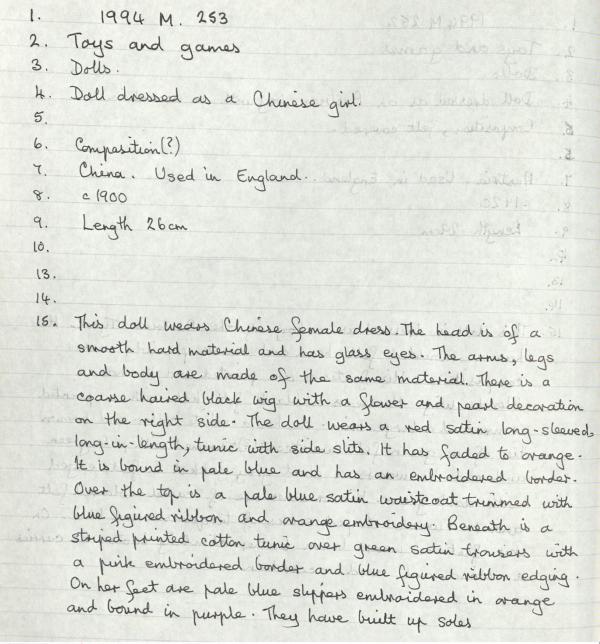 1. 1994 M. 253
2. Toys and games
3. Dolls.
4. Doll dressed as a Chinese girl.
5.
6. Composition(?)
7. China. Used in England.
8. c 1900
9. Length 26cm
10.
13.
14.
15. This doll wears Chinese female dress. The head is of a
smooth hard material and has glass eyes. The arms, legs
and body are made of the same material. There is a
coarse haired black wig with a flower and pearl decoration
on the right side. The doll wears a red satin long-sleeved,
long-in-length, tunic with side slits. It has faded to orange.
It is bound in pale blue and has an embroidered border.
Over the top is a pale blue satin waistcoat trimmed with
blue figured ribbon and orange embroidery. Beneath is a
striped printed cotton tunic over green satin trousers with
a pink embroidered border and blue figured ribbon edging.
On her feet are pale blue slippers embroidered in orange
and bound in purple. They have built up soles